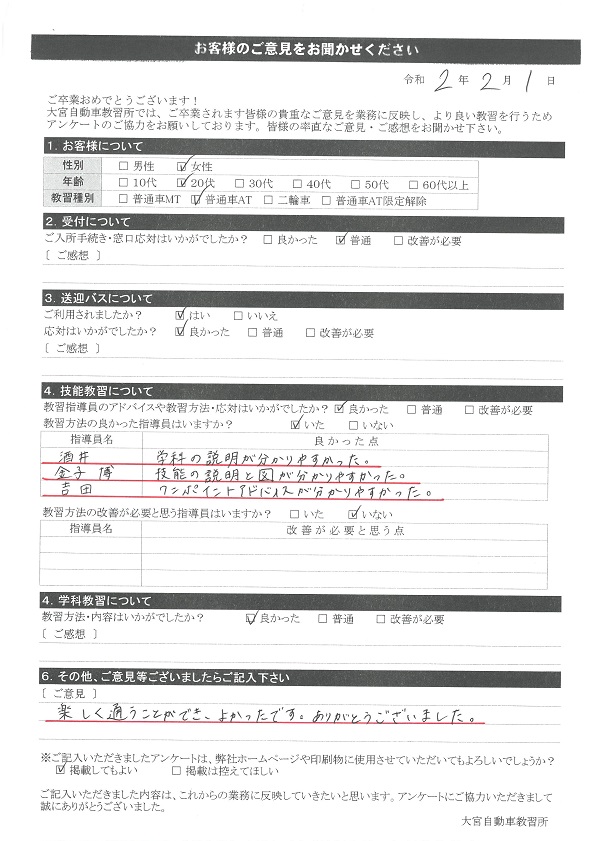 お客様のご意見をお聞かせください
令和 2 年 2 月 1 日
ご卒業おめでとうございます！
大宮自動車教習所では、ご卒業されます皆様の貴重なご意見を業務に反映し、より良い教習を行うため
アンケートのご協力をお願いしております。皆様の率直なご意見・ご感想をお聞かせ下さい。
1. お客様について
性別 □ 男性 ☑ 女性
年齢 □ 10代 ☑ 20代 □ 30代 □ 40代 □ 50代 □ 60代以上
教習種別 □ 普通車MT ☑ 普通車AT □ 二輪車 □ 普通車AT限定解除
2. 受付について
ご入所手続き・窓口応対はいかがでしたか？ □ 良かった ☑ 普通 □ 改善が必要
〔 ご感想 〕
3. 送迎バスについて
ご利用されましたか？ ☑ はい □ いいえ
応対はいかがでしたか？ ☑ 良かった □ 普通 □ 改善が必要
〔 ご感想 〕
4. 技能教習について
教習指導員のアドバイスや教習方法・応対はいかがでしたか？ ☑ 良かった □ 普通 □ 改善が必要
教習方法の良かった指導員はいますか？ ☑ いた □ いない
指導員名 良かった点
酒井 学科の説明が分かりやすかった。
金子 博 技能の説明と図が分かりやすかった。
吉田 ワンポイントアドバイスが分かりやすかった。
教習方法の改善が必要と思う指導員はいますか？ □ いた ☑ いない
指導員名 改善が必要と思う点
4. 学科教習について
教習方法・内容はいかがでしたか？ ☑ 良かった □ 普通 □ 改善が必要
〔 ご感想 〕
6. その他、ご意見等ございましたらご記入下さい
〔 ご意見 〕
楽しく通うことができ、よかったです。ありがとうございました。
※ご記入いただきましたアンケートは、弊社ホームページや印刷物に使用させていただいてもよろしいでしょうか？
☑ 掲載してもよい □ 掲載は控えてほしい
ご記入いただきました内容は、これからの業務に反映していきたいと思います。アンケートにご協力いただきまして
誠にありがとうございました。
大宮自動車教習所